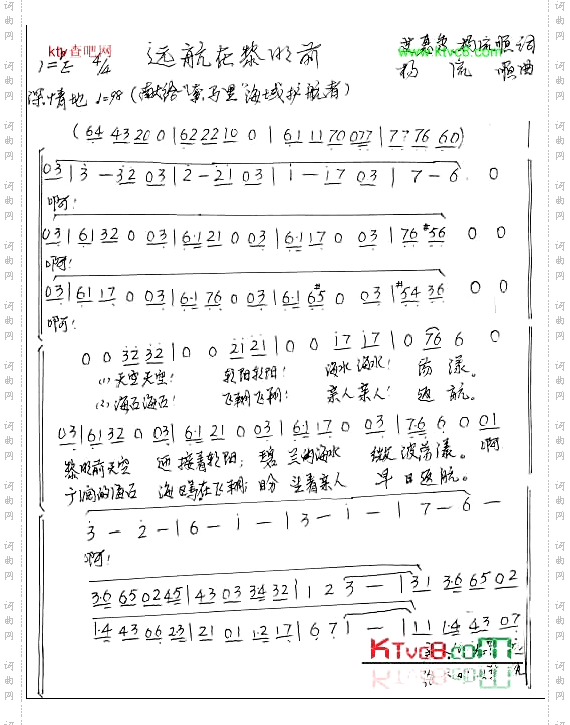 ktv查吧网
www.ktvc8.com
远航在黎明前
杨流顺词
1=E 4/4
杨流顺曲
深情地 ♩=98 (献给"索马里"海域护航者)
(64 43 20 0 | 62 22 10 0 | 61 11 70 077 | 77 76 60)
03 | 3 - 32 03 | 2 - 21 03 | 1 - 17 03 | 7 - 6 . 0
啊!
03 | 61 32 0 03 | 6·1 21 0 03 | 6·1 17 0 03 | 76 #56 0 0
啊!
03 | 61 17 0 03 | 6·1 76 0 03 | 6·1 6#5 0 03 | #54 36 0 0
啊!
0 0 32 32 | 0 0 21 21 | 0 0 17 17 | 0 76 6 0
(1)天空天空! 朝阳朝阳! 海水海水! 荡漾。
(2)海石海石! 飞翔飞翔! 亲人亲人! 返航。
03 | 61 32 0 03 | 61 21 0 03 | 61 17 0 03 | 7·6 6 0 01
黎明前天空 迎接着朝阳; 碧兰的海水 微波荡漾。 啊
海鸥在飞翔; 盼望着亲人 早日返航。
3 - 2 - | 6 - 1 - | 3 - 1 - | 7 - 6 -
啊!
36 65 02 45 | 43 03 34 32 | 1 2 3 - | 31 36 65 02
1·4 43 06 23 | 21 01 12 17 | 6 7 1 - | 11 1·4 43 07
KTvc8.com
词曲网